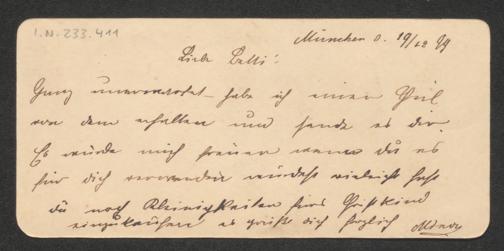 I.N. 233.411
München d. 19/12 99
Liebe Betti!
Ganz unerwartet habe ich einen Theil
von dem erhalten und sende es dir.
Es würde mich freuen wenn du es
für dich verwenden würdest vielleicht hast
du noch Kleinigkeiten fürs Christkind
einzukaufen es grüßt dich herzlich